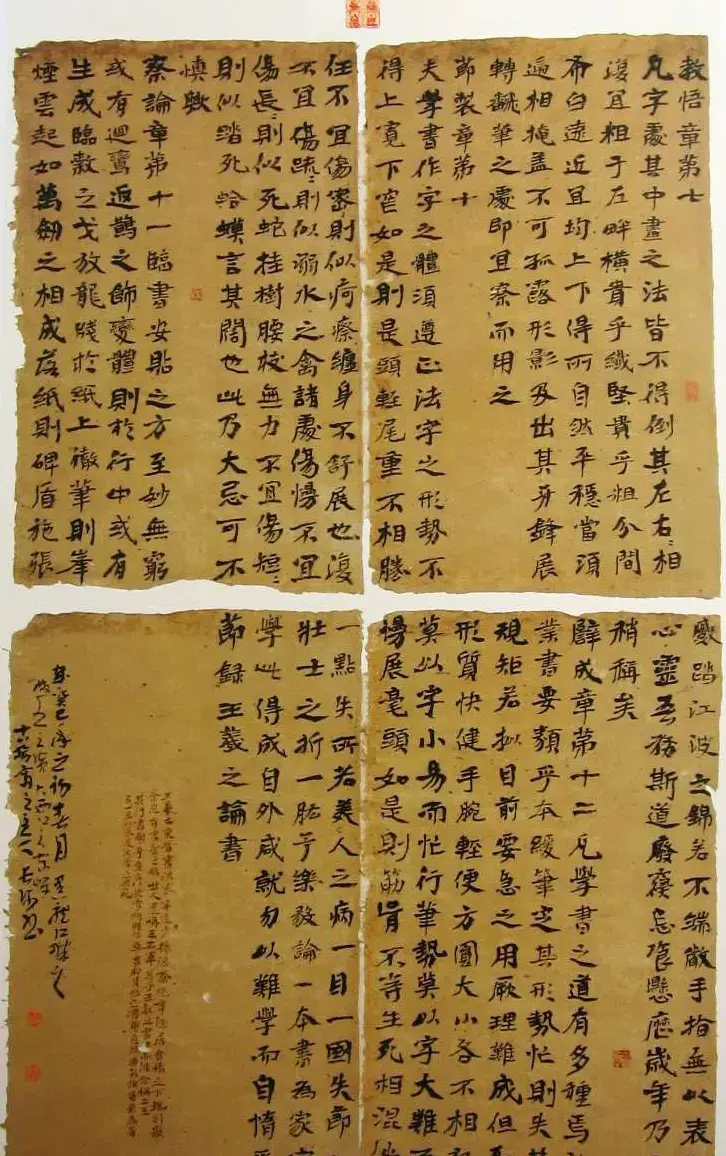 教悟章第七
凡字處其中畫之法皆不得倒其左右〻相
復宜粗于左畔橫貴乎纖竪貴乎粗分間
布白遠近宜均上下得所自然平穩當須
遞相掩盖不可孤露形影及出其牙鋒展
轉翻筆之處即宜察而用之
節製章第十
夫學書作字之體須遵正法字之形勢不
得上寬下窄如是則是頭軽尾重不相勝
任不宜傷密〻則似疴瘵纏身不舒展也復
不宜傷疏〻則似溺水之禽諸處傷慢不宜
傷長〻則似死蛇挂樹腰枝無力不宜傷短〻
則似踏死蛤蟆言其闊也此乃大忌可不
慎歟
察論章第十一臨書安貼之方至妙無窮
或有迴鸞返鵲之飾變體則於行中或有
生成臨敷之戈放龍賤於紙上徹筆則峯
煙雲起如萬劔之相成落紙則碑盾施張
蹙踏江波之錦若不端嚴手指無以表
心靈吾務斯道廢寢忘飡懸歷歲年乃
稍稱矣
譬成章第十二凡學書之道有多種焉
業書要類乎本緩筆定其形勢忙則失其
規矩若擬目前要急之用厥理難成但
形質快健手腕輕便方圓大小各不相
莫以字小易而忙行筆勢莫以字大難
慢展毫頭如是則筋骨不等生死相混
一點失所若美人之病一目一國失節
壯士之折一肱予樂敎論一本書為家
學此得成自外咸就勿以難學而自惰
節録王羲之論書